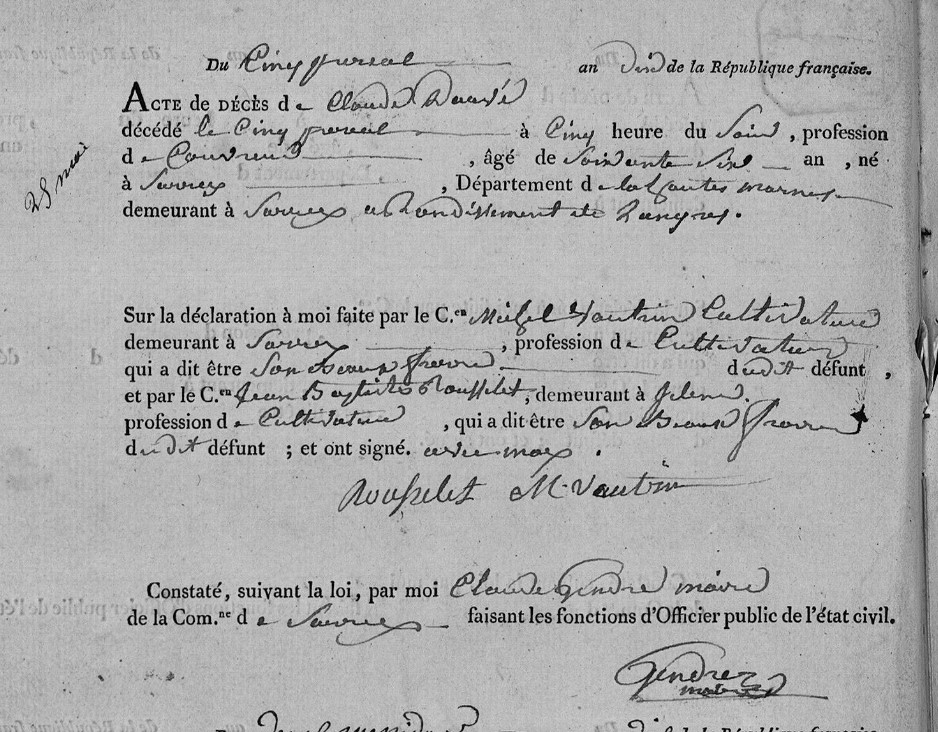 Du Cinq prereal an dix de la République française.
ACTE de DÉCÈS de Claude
décédé le Cinq prereal à Cinq heure du Soir, profession
de Couvreur, âgé de Soixante Six an, né
25 mai
à Sarrey, Département de la hautes marnes
demeurant à Sarrey arrondissement de Langres.
Sur la déclaration à moi faite par le C.en Michel Vautrin Cultivature
demeurant à Sarrey, profession de Cultivateur
qui a dit être Son Beaux frere dudit défunt,
et par le C.en Jean Baptiste Rousselet, demeurant à
profession de Cultivature, qui a dit être Son Beaux frere
dudit défunt; et ont signé. avec moy.
Rousselet M. Vautrin
Constaté, suivant la loi, par moi Claude Gendre maire
de la Com.ne de Sarrey faisant les fonctions d'Officier public de l'état civil.
Gendre
maire
de la République française